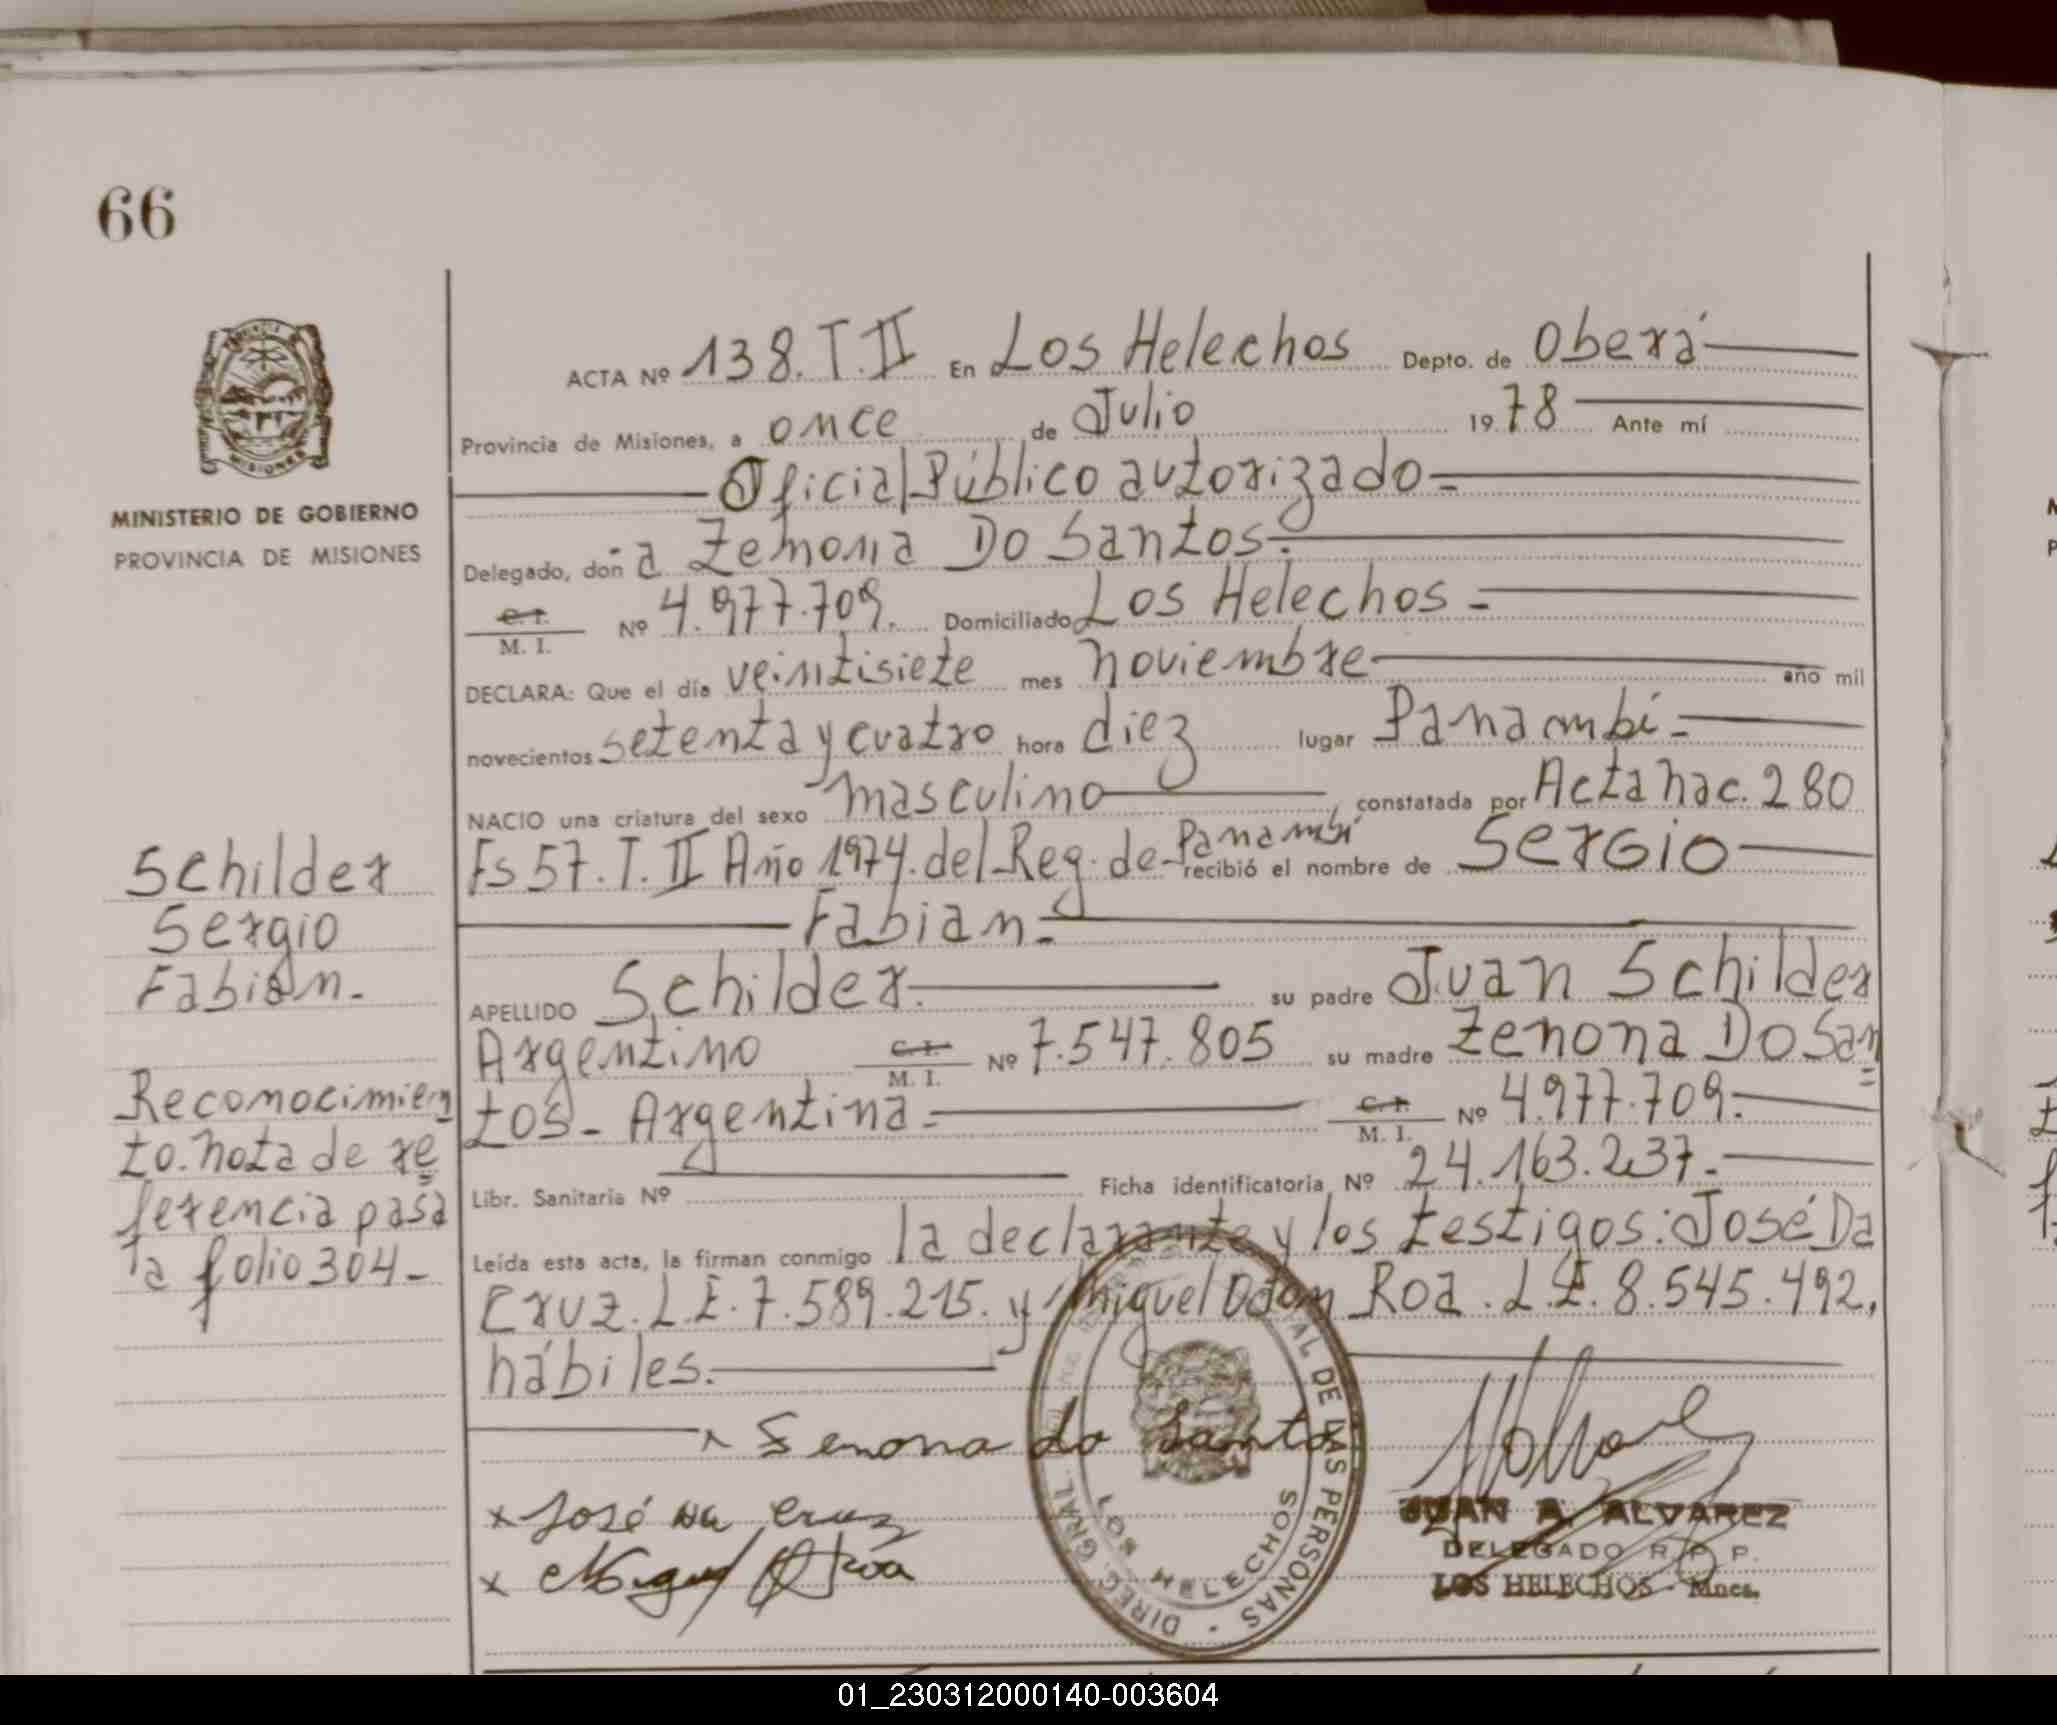 66
MINISTERIO DE GOBIERNO
PROVINCIA DE MISIONES
Schilder
Sergio
Fabián.-
Reconocimien
to. nota de re
ferencia pasa
ta folio 304-
ACTA Nº 138. T. II En Los Helechos Depto. de Oberá
Provincia de Misiones, a once de Julio 1978 Ante mí
Oficial Público autorizado-
Delegado, don a Zenona Do Santos.-
C. I.
M. I. Nº 4.977.709. Domiciliado Los Helechos-
DECLARA: Que el día veintisiete mes noviembre año mil
novecientos setenta y cuatro hora diez lugar Panambí-
NACIO una criatura del sexo masculino, constatada por Acta nac. 280
Fs 57. T. II Año 1974. del Reg. de Panambí recibió el nombre de Sergio
Fabian.-
APELLIDO Schilder. su padre Juan Schilder
Argentino C. I. M. I. Nº 7.547.805 su madre Zenona Do San=
tos- Argentina- C. I. M. I. Nº 4.977.709.
Libr. Sanitaria Nº Ficha identificatoria Nº 24.163.237.-
Leída esta acta, la firman conmigo la declarante y los testigos: José Da
Cruz. L.E. 7.589.215. y Miguel Odom Roa. L.E. 8.545.492,
hábiles.
x Senona do Santo
x José Da Cruz
x Miguel O Roa
DIREC. GRAL. DE LAS PERSONAS
LOS HELECHOS
JUAN A. ALVAREZ
DELEGADO R. P. P.
LOS HELECHOS - Mnes.
01_230312000140-003604